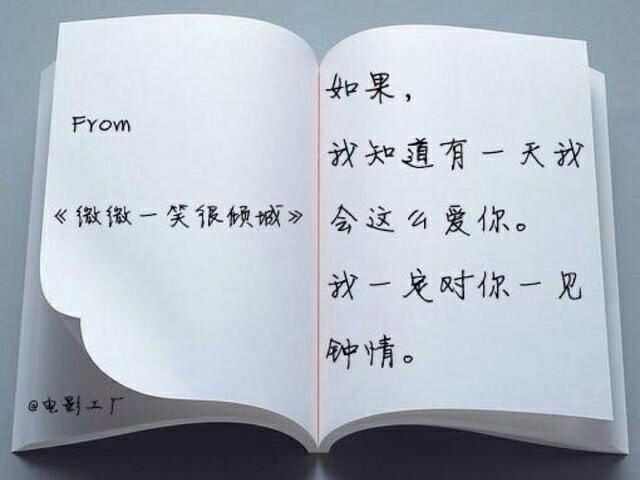 From
《微微一笑很倾城》
@电影工厂
如果，
我知道有一天我
会这么爱你。
我一定对你一见
钟情。